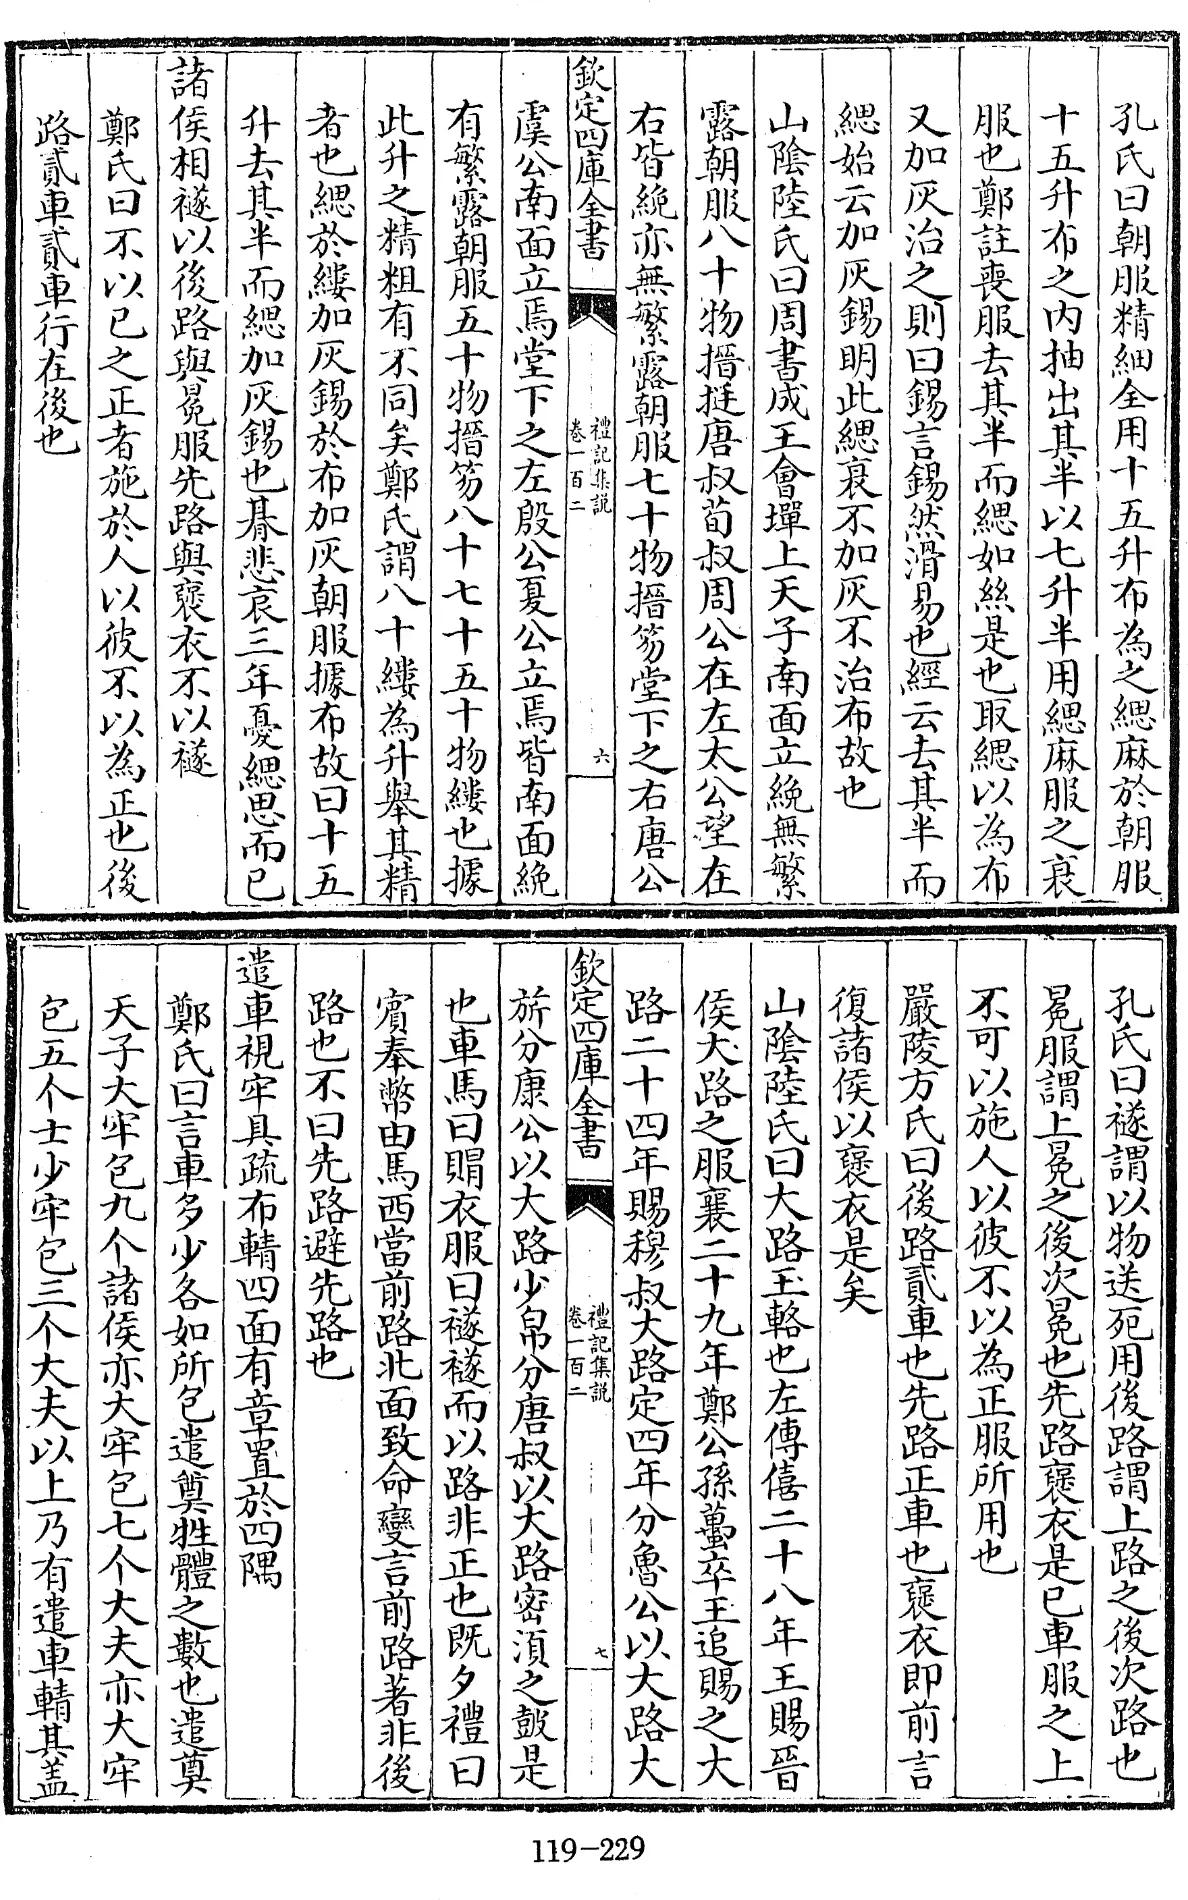 孔氏曰朝服精細全用十五升布為之緦麻於朝服
十五升布之內抽出其半以七升半用緦麻服之衰
服也鄭註喪服去其半而緦如絲是也取緦以為布
又加灰治之則曰錫言錫然滑易也經云去其半而
緦始云加灰錫明此緦衰不加灰不治布故也
山陰陸氏曰周書成王會墠上天子南面立絻無繁
露朝服八十物搢挺唐叔荀叔周公在左太公望在
右皆絻亦無繁露朝服七十物搢笏堂下之右唐公
欽定四庫全書
禮記集說
卷一百二
六
虞公南面立焉堂下之左殷公夏公立焉皆南面絻
有繁露朝服五十物搢笏八十七十五十物縷也據
此升之精粗有不同矣鄭氏謂八十縷為升舉其精
者也緦於縷加灰錫於布加灰朝服據布故曰十五
升去其半而緦加灰錫也朞悲哀三年憂緦思而已
諸侯相襚以後路與冕服先路與褒衣不以襚
鄭氏曰不以己之正者施於人以彼不以為正也後
路貳車貳車行在後也
孔氏曰襚謂以物送死用後路謂上路之後次路也
冕服謂上冕之後次冕也先路褒衣是已車服之上
不可以施人以彼不以為正服所用也
嚴陵方氏曰後路貳車也先路正車也褒衣即前言
復諸侯以褒衣是矣
山陰陸氏曰大路玉輅也左傳僖二十八年王賜晉
侯大路之服襄二十九年鄭公孫蠆卒王追賜之大
路二十四年賜穆叔大路定四年分魯公以大路大
欽定四庫全書
禮記集說
卷一百二
七
旂分康公以大路少帛分唐叔以大路密須之鼓是
也車馬曰賵衣服曰襚襚而以路非正也既夕禮曰
賓奉幣由馬西當前路北面致命變言前路著非後
路也不曰先路避先路也
遣車視牢具疏布輤四面有章置於四隅
鄭氏曰言車多少各如所包遣奠牲體之數也遣奠
天子大牢包九个諸侯亦大牢包七个大夫亦大牢
包五个士少牢包三个大夫以上乃有遣車輤其蓋
119-229